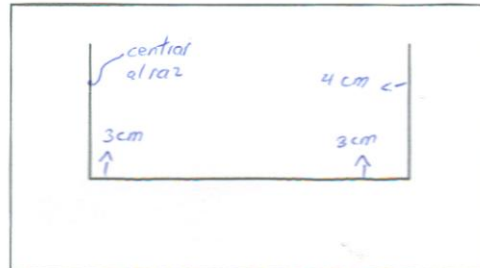 central
al raz
4 cm
3cm
3cm